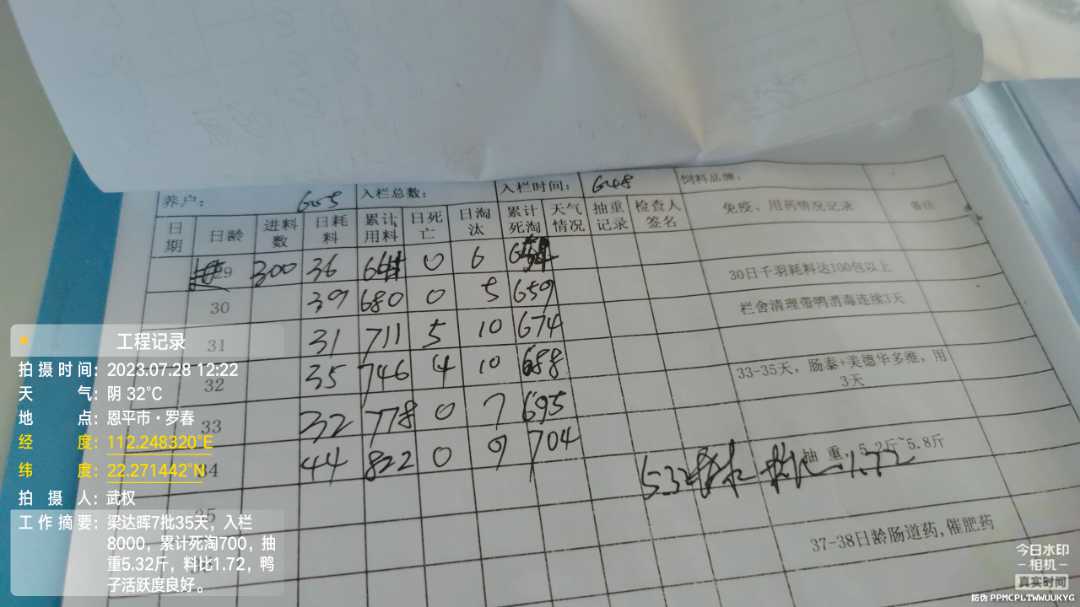 养户: 605 入栏总数: 入栏时间: 6.48 饲料品牌:
日期 日龄 进料数 日耗料 累计用料 日死亡 日淘汰 累计死淘 天气情况 抽重记录 检查人签名 免疫、用药情况记录 备注
29 300 36 0 6 30日千羽耗料达100包以上
30 39 680 0 5 659 栏舍清理带鸭消毒连续3天
31 31 711 5 10 674
32 35 746 4 10 688 33-35天，肠泰+美德华多维，用3天
33 32 778 0 7 695
34 44 822 0 9 704 抽重，5.2斤~5.8斤
5.32 1.72
35
37-38日龄肠道药,催肥药
工程记录
拍摄时间: 2023.07.28 12:22
天气: 阴 32℃
地点: 恩平市·罗春
经度: 112.248320°E
纬度: 22.271442°N
拍摄人: 武权
工作摘要: 梁达晖7批35天，入栏
8000，累计死淘700，抽
重5.32斤，料比1.72，鸭
子活跃度良好。
今日水印
-相机-
真实时间
防伪 PPMCPLTWWUUKYG